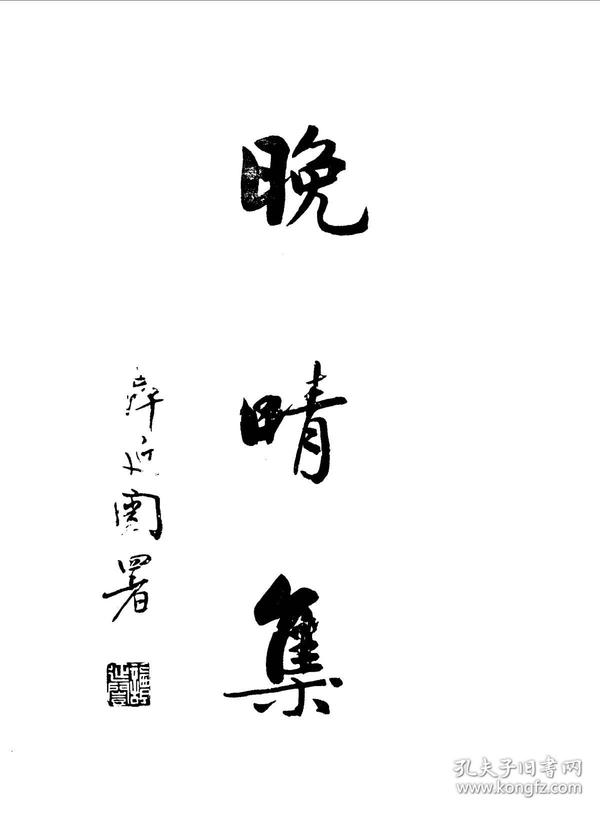 晚晴集
署
孔夫子旧书网
www.kongfz.com